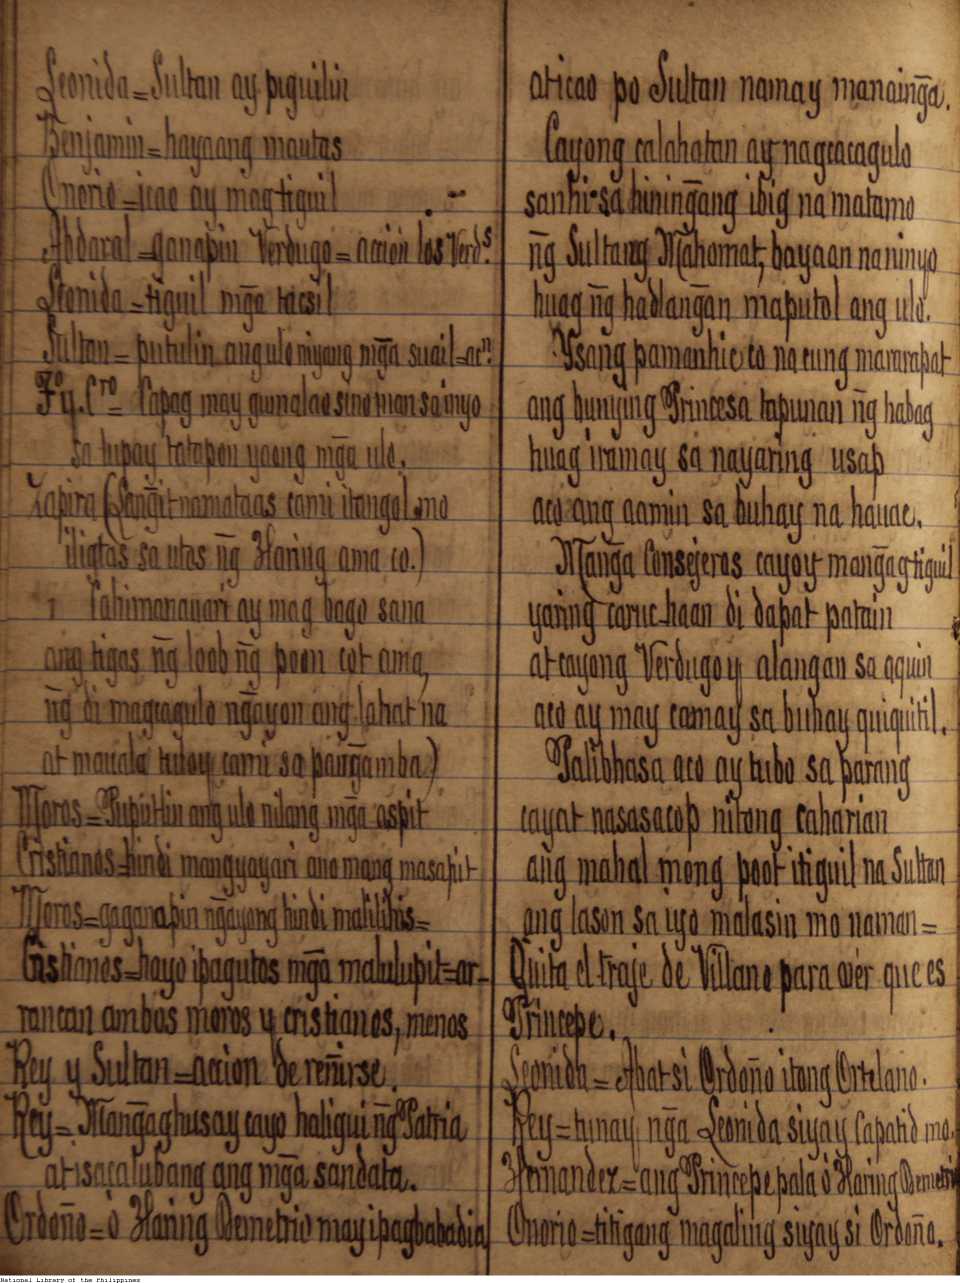 Leonida = Sultan ay piguilin
Benjamin = hayaang mautas
Onorio = icao ay mag tiguil
Abdaral = ganapin Verdugo = accion los Verd.s
Leonida = tiguil mg̃a tacsil
Sultan = putulin ang ulo niyang mg̃a suail = ac.n
Fy. Cro = Capag may gumalao sino man sa inyo
sa lupay tatapon yaong mg̃a ulo.
Zapira (Lang̃it na mataas cami itangol mo
iligtas sa utos ng̃ Haring ama co.)
Cahimanauari ay mag bago sana
ang tigas ng̃ loob ng̃ poon cot ama,
ng̃ di magcagulo ng̃ayon ang lahat na
at mauala tuloy cami sa pang̃amba)
Moros = Puputlin ang ulo nilang mg̃a aspit
Cristianos = hindi mangyayari ano mang masapit
Moros = gaganapin ng̃ayong hindi malilihis =
Cristianos = hayo ipagutos mg̃a malulupit = ar-
rancan ambos moros y cristianos, menos
Rey y Sultan = accion de reñirse.
Rey = Mang̃aghusay cayo haligui ng̃ Patria
at isacalubang ang mg̃a sandata.
Ordoño = ó Haring Demetrio may ipagbabadia
at icao po Sultan namay manaing̃a.
Cayong calahatan ay nagcacagulo
sanhi sa hining̃ang ibig na matamo
ng̃ Sultang Mahomat, bayaan na ninyo
huag ng̃ hadlang̃an maputol ang ulo.
Ysang pamanhic co na cung mararapat
ang bunying Princesa tapunan ng̃ habag
huag iramay sa nayaring usap
aco ang aamin sa buhay na hauac.
Mang̃a Consejeros cayoy mang̃agtiguil
yaring caruc-haan di dapat patain
at cayong Verdugoy alangan sa aquin
aco ay may camay sa buhay quiquitil.
Palibhasa aco ay tubo sa parang
cayat nasasacop nitong caharian
ang mahal mong poot itiguil na Sultan
ang lason sa iyo malasin mo naman =
Quita el traje de Villano para ver que es
Principe.
Leonida = Abat si Ordoño itong Ortelano.
Rey = tunay ng̃a Leonida siyay Capatid mo.
Hernandez = ang Principe pala ó Haring Demetrio
Onorio = titigang magaling siyay si Ordoño.
National Library of the Philippines